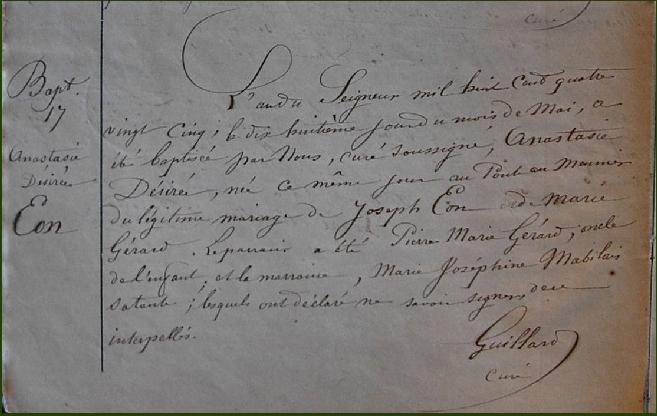 curé
Bapt.
17
Anastasie
Désirée
Eon
L'an du Seigneur mil huit cent quatre
vingt cinq, le dix huitième jour du mois de Mai, a
été baptisée par Nous, curé soussigné, Anastasie
Désirée, née ce même jour au Pont au Meunier
du légitime mariage de Joseph Eon et de Marie
Gérard. Le parrain a été Pierre Marie Gérard, oncle
de l'enfant, et la marraine, Marie Joséphine Mabilais
sa tante ; lesquels ont déclaré ne savoir signer de ce
interpellés.
Guillard
curé